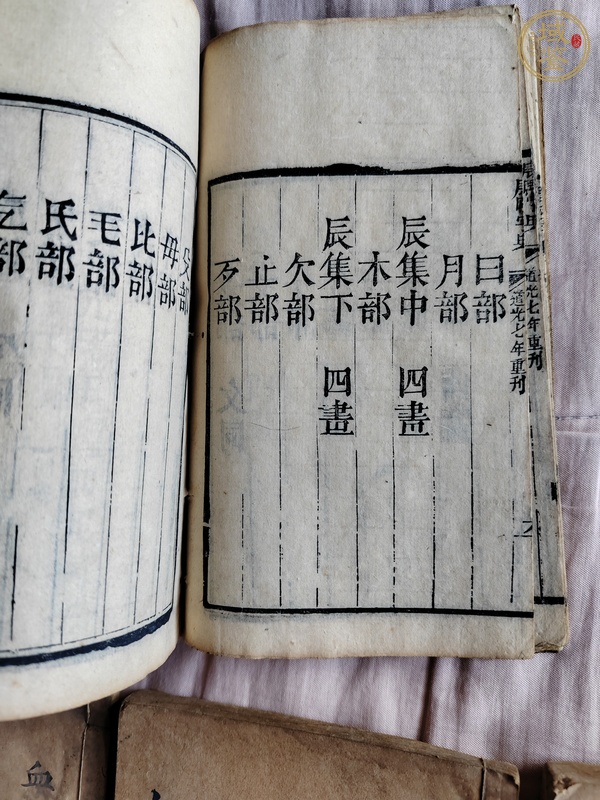 康熙字典 道光七年重刊
曰部
月部
辰集中 四畫
木部
辰集下 四畫
欠部
止部
歹部
殳部
毋部
比部
毛部
氏部
气部
血